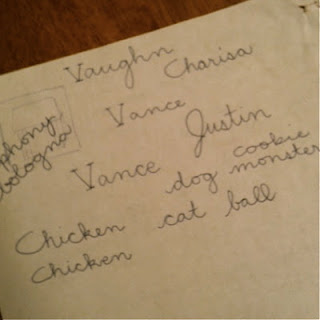 Vaughn
Charisa
Vance
Justin
phony
bologna
Vance
cookie
dog monster
Chicken cat ball
Chicken